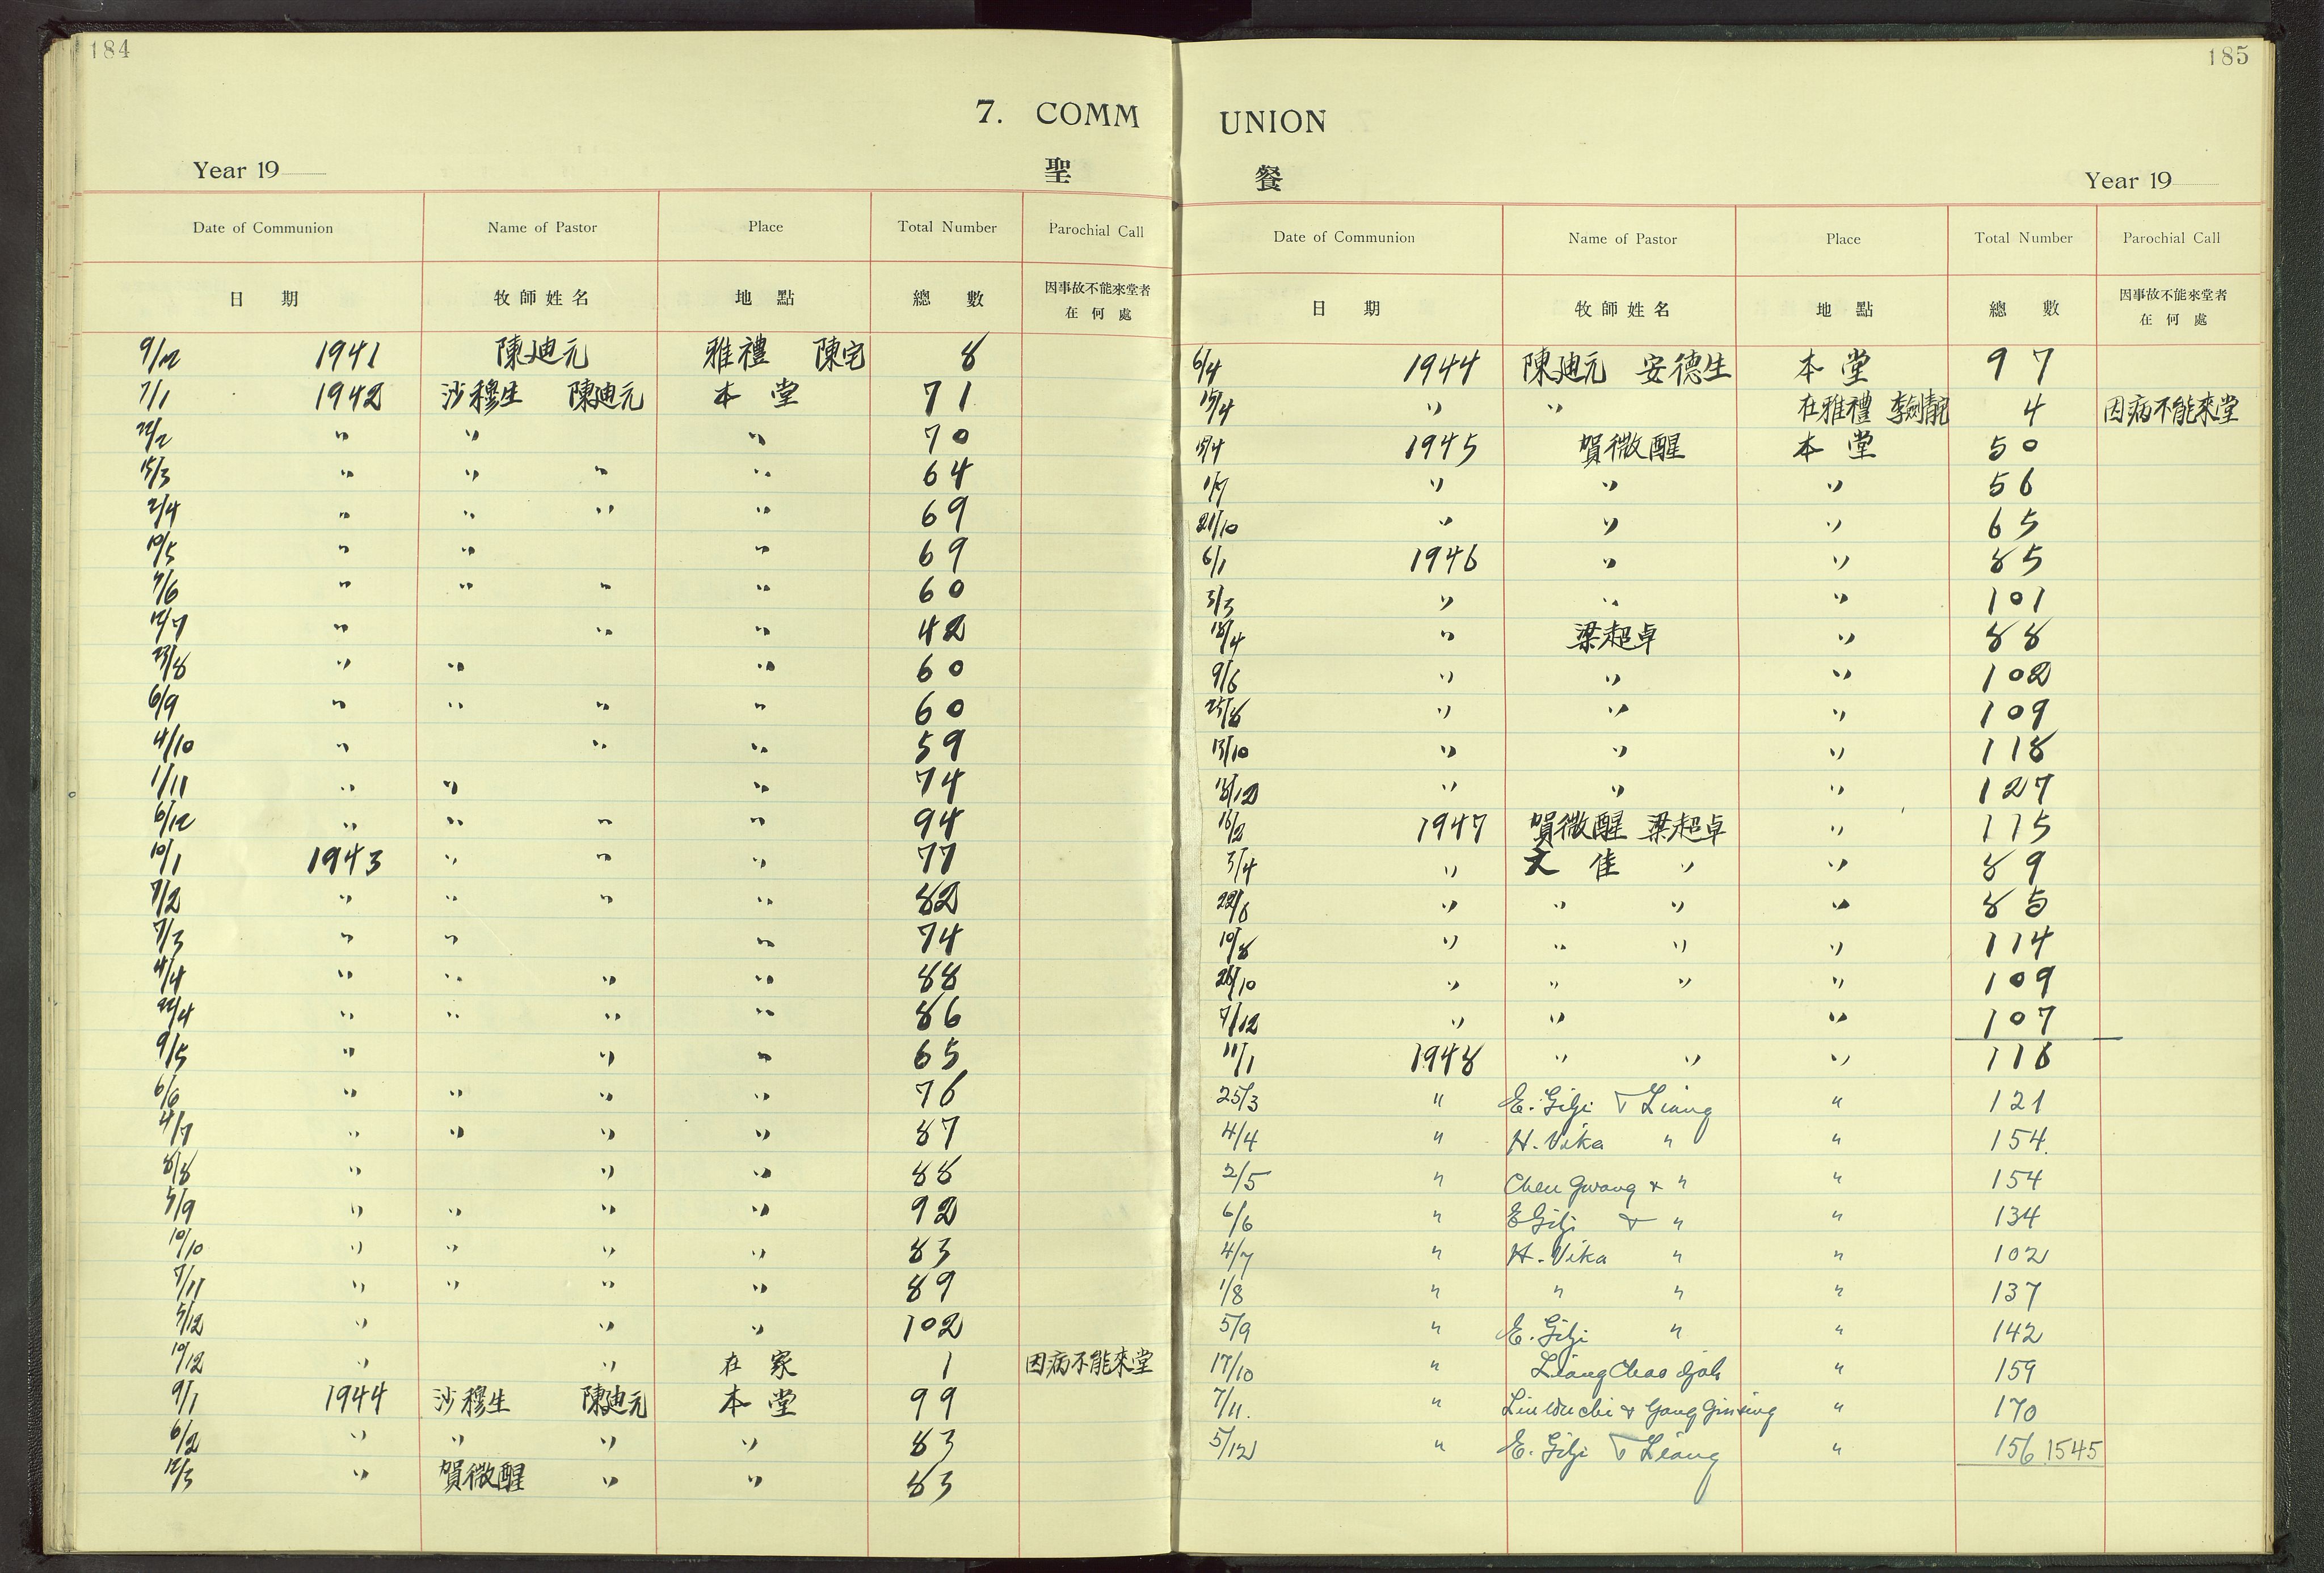 184
7. COMM
Year 19
聖
Date of Communion Name of Pastor Place Total Number Parochial Call
日 期 牧師姓名 地 點 總 數 因事故不能來堂者
在何處
9/12 1941 陳廸元 雅禮 陳宅 8
7/1 1942 沙穆生 陳廸元 本堂 71
22/2 " " " 70
15/3 " " " " 64
2/4 " " " " 69
10/5 " " " 69
7/6 " " " " 60
12/7 " " " 42
23/8 " " " 60
6/9 " " " " 60
4/10 " " " 59
1/11 " " " 74
6/12 " " " " 94
10/1 1943 " " " 77
7/2 " " " " 82
7/3 " " " 74
4/4 " " " " 88
22/4 " " " " 86
9/5 " " " 65
6/6 " " " " 76
4/7 " " " " 87
8/8 " " " 88
5/9 " " " " 92
10/10 " " " " 83
7/11 " " " " 89
5/12 " " " 102
19/12 " " 在家 1 因病不能來堂
9/1 1944 沙穆生 陳廸元 本堂 99
6/2 " " " " 83
12/3 " 賀微醒 " " 83
185
UNION
餐
Year 19
Date of Communion Name of Pastor Place Total Number Parochial Call
日 期 牧師姓名 地 點 總 數 因事故不能來堂者
在何處
6/4 1944 陳廸元 安德生 本堂 97
15/4 " " 在雅禮 4 因病不能來堂
1945 賀微醒 本堂 50
1/7 " " " 56
21/10 " " " 65
6/1 1946 " " 85
3/3 " " " 101
18/4 " 梁超卓 " 88
9/6 " " " 102
25/8 " " " 109
13/10 " " " 118
" " " 127
16/2 1947 賀微醒 梁超卓 " 115
3/4 " 文佳 " " 89
22/6 " " " " 85
10/8 " " " " 114
26/10 " " " " 109
7/12 " " " 107
11/1 1948 " " " 116
25/3 " E. Gilje & Liang " 121
4/4 " H. Vika " " 154
2/5 " Chen Gwang & " " 154
6/6 " E Gilje & " " 134
4/7 " H. Vika " " 102
1/8 " " " " 137
5/9 " E. Gilje " " 142
17/10 " Liang Chao djoh " 159
7/11. " Liu Wu chi & Gong Ginsing " 170
5/12 " E. Gilje & Liang " 156 1545